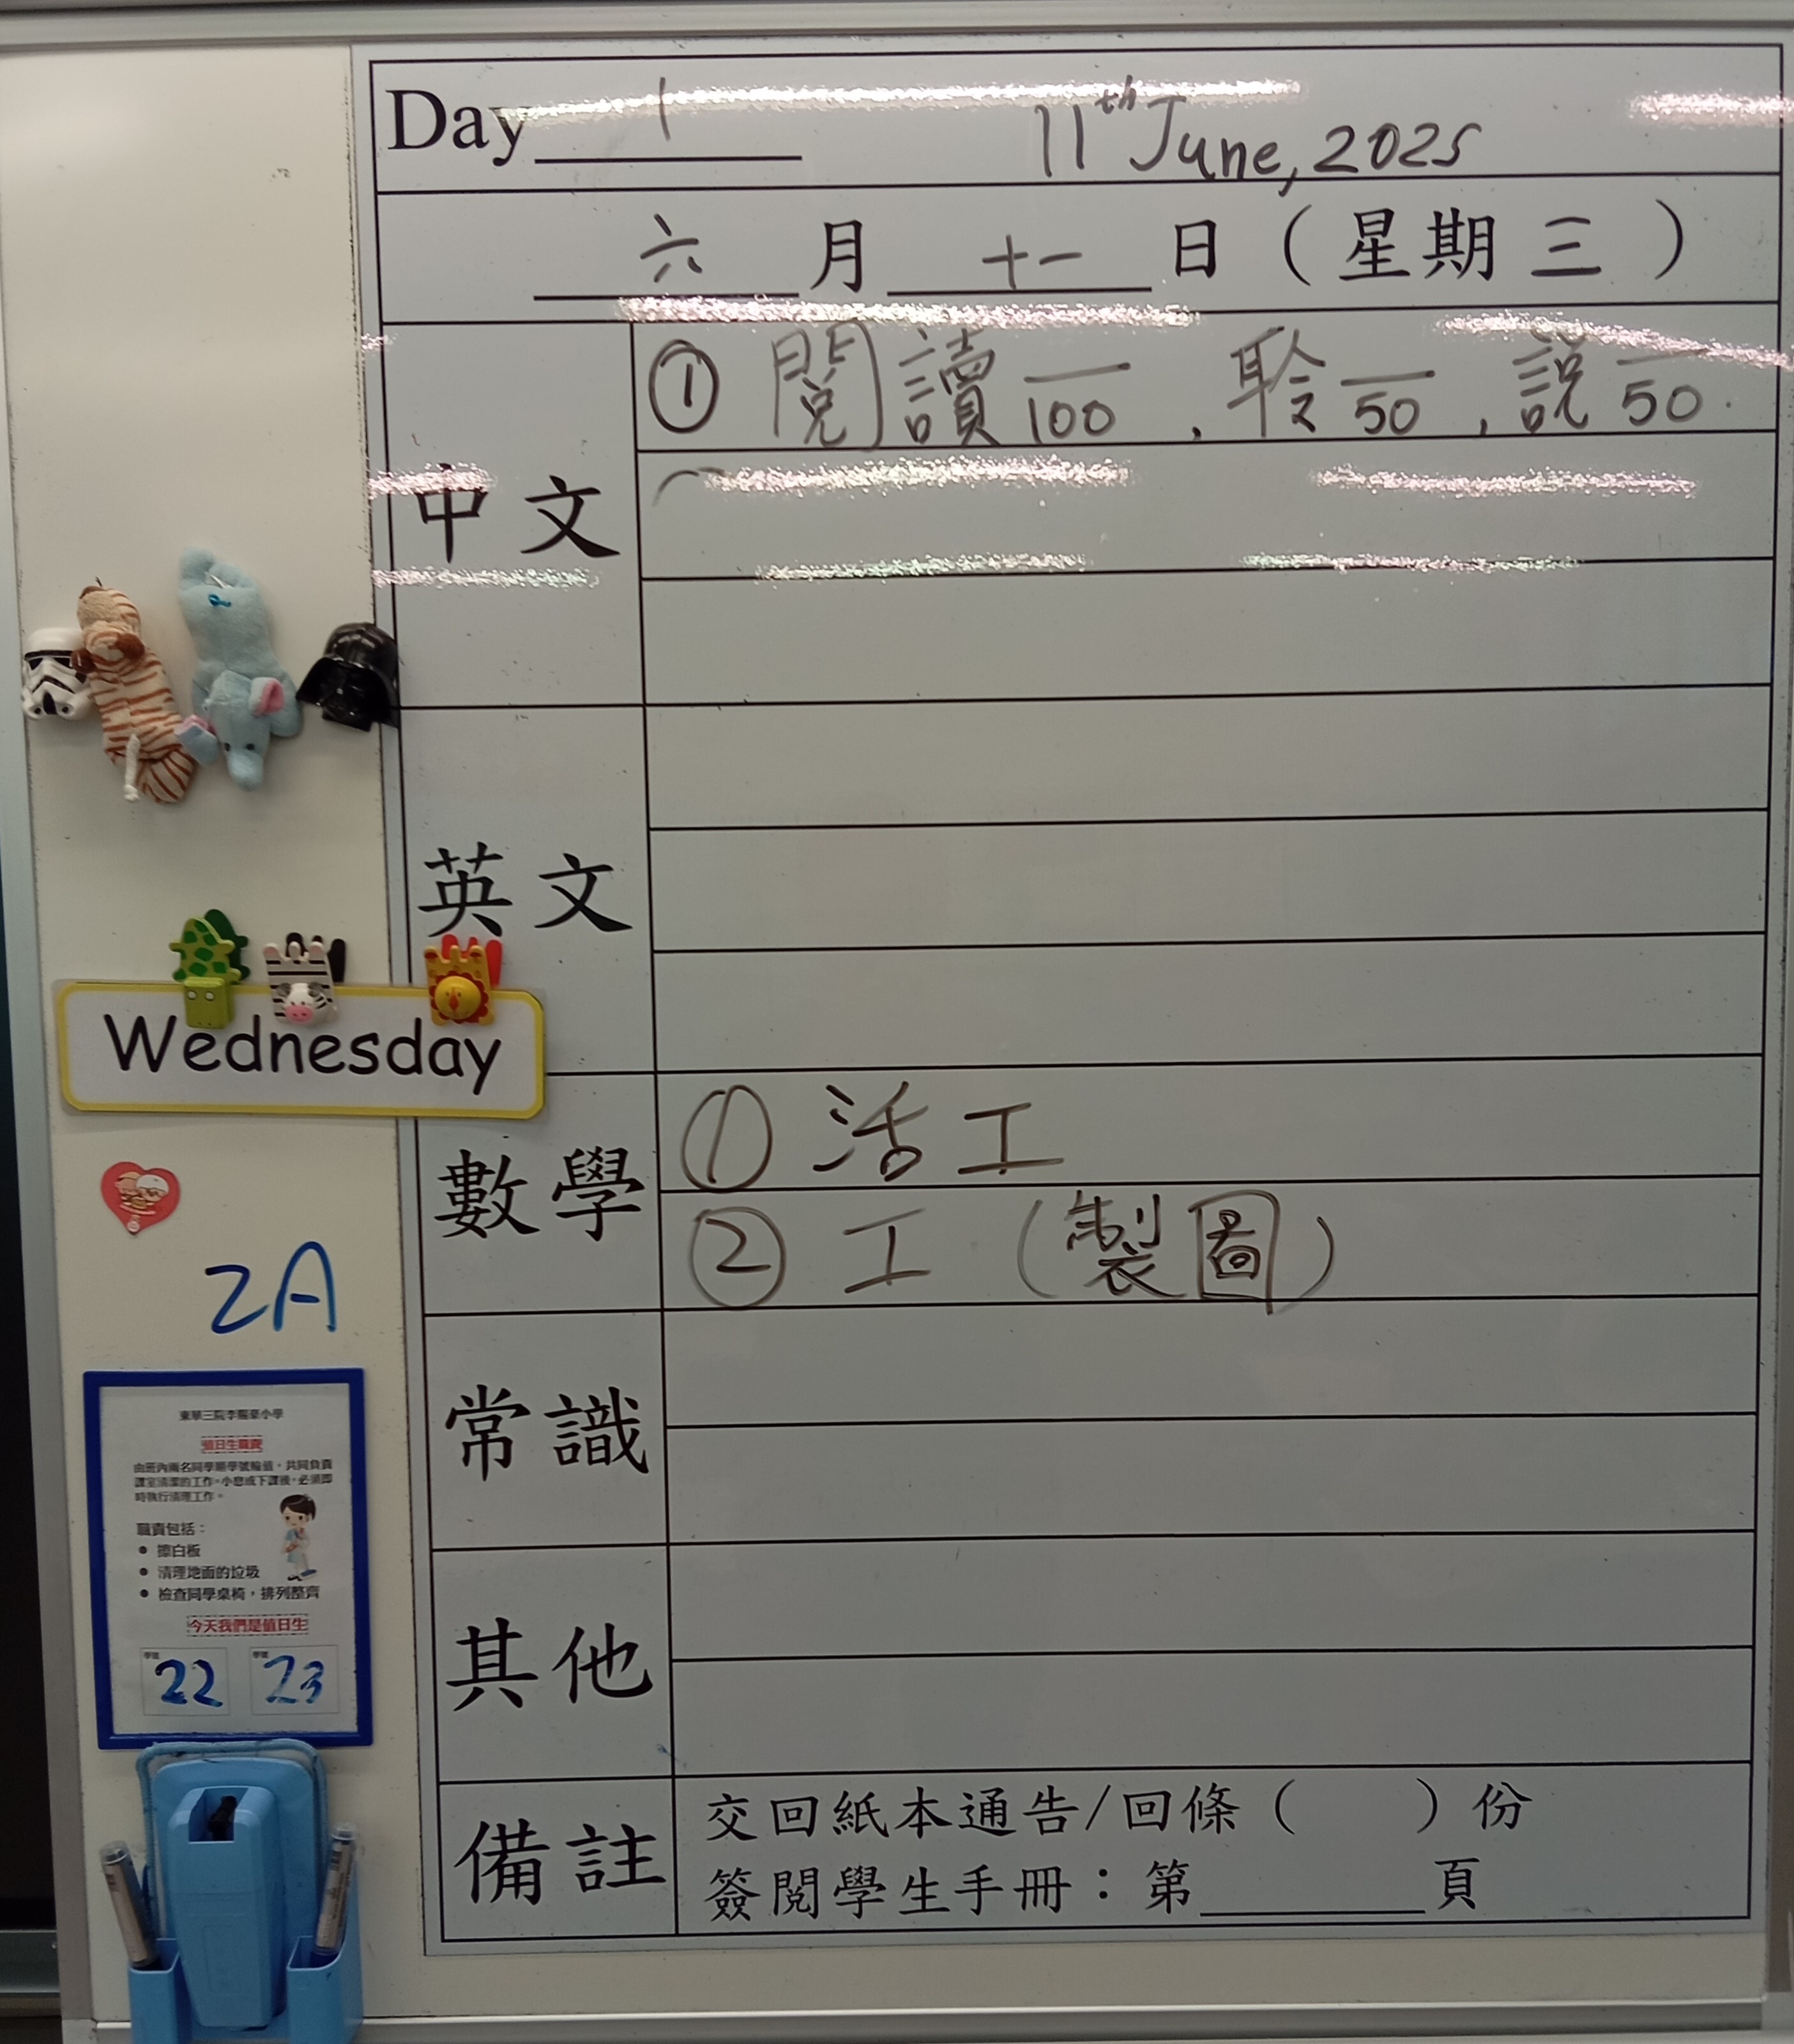 Day 1 11th June, 2025
六 月 十一 日 ( 星期 三 )
中文
① 閱讀 /100 , 聆 /50 , 說 /50 .
英文
Wednesday
數學
① 活工
② 工 (製圖)
2A
常識
東華三院李賜豪小學
值日生職責
由班內兩名同學順學號輪值，共同負責
課室清潔的工作。小息或下課後，必須即
時執行清理工作。
職責包括：
● 擦白板
● 清理地面的垃圾
● 檢查同學桌椅，排列整齊
今天我們是值日生
學號 22 學號 23
其他
備註
交回紙本通告/回條（ ）份
簽閱學生手冊：第______頁